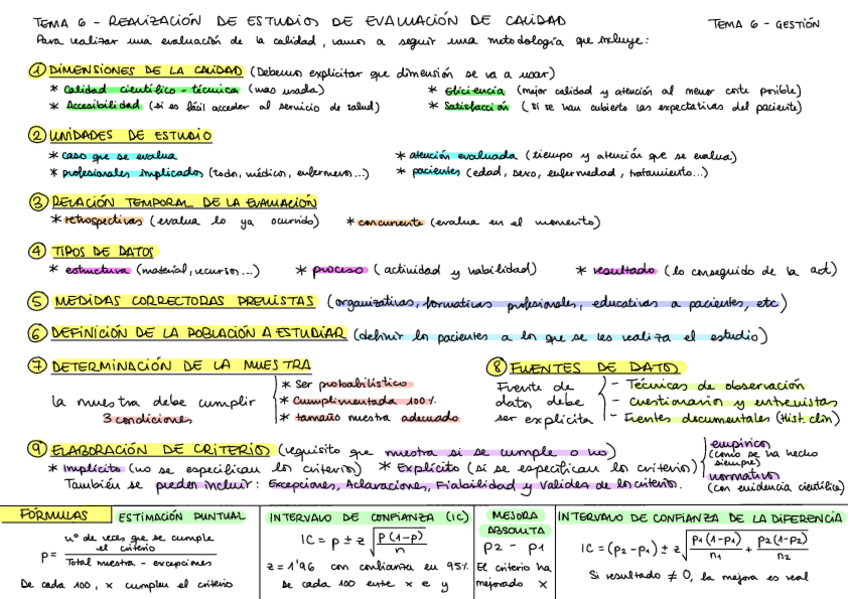 TEMA 6 - REALIZACIÓN DE ESTUDIOS DE EVALUACIÓN DE CALIDAD
TEMA 6 - GESTIÓN
Para realizar una evaluación de la calidad, vamos a seguir una metodología que incluye:
① DIMENSIONES DE LA CALIDAD (Debemos explicitar que dimensión se va a usar)
* Calidad científico-técnica (más usada)
* Eficiencia (mejor calidad y atención al menor coste posible)
* Accesibilidad (si es fácil acceder al servicio de salud)
* Satisfacción (si se han cubierto las expectativas del paciente)
② UNIDADES DE ESTUDIO
* caso que se evalua
* atención evaluada (tiempo y atención que se evalua)
* profesionales implicados (todo, médicos, enfermeros...)
* pacientes (edad, sexo, enfermedad, tratamiento...)
③ RELACIÓN TEMPORAL DE LA EVALUACIÓN
* retrospectivas (evalua lo ya ocurrido)
* concurrente (evalua en el momento)
④ TIPOS DE DATOS
* estructura (material, recursos...)
* proceso (actividad y habilidad)
* resultado (lo conseguido de la act)
⑤ MEDIDAS CORRECTORAS PREVISTAS (organizativas, formativas profesionales, educativas a pacientes, etc)
⑥ DEFINICIÓN DE LA POBLACIÓN A ESTUDIAR (definir los pacientes a los que se les realiza el estudio)
⑦ DETERMINACIÓN DE LA MUESTRA
La muestra debe cumplir
3 condiciones
* Ser probabilístico
* Cumplimentada 100%
* tamaño muestra adecuado
⑧ FUENTES DE DATOS
Fuente de
datos debe
ser explícita
- Técnicas de observación
- Cuestionarios y entrevistas
- Fuentes documentales (Hist. clín)
⑨ ELABORACIÓN DE CRITERIOS (requisito que muestra si se cumple o no)
* Implícito (no se especifican los criterios) * Explícito (si se especifican los criterios)
empíricos
(como se ha hecho
siempre)
normativos
(con evidencia científica)
También se pueden incluir: Excepciones, Aclaraciones, Fiabilidad y Valides de los criterios.
FÓRMULAS
ESTIMACIÓN PUNTUAL
p = nº de veces que se cumple el criterio / Total muestra - excepciones
De cada 100, x cumplen el criterio
INTERVALO DE CONFIANZA (IC)
IC = p ± z √(p(1-p)/n)
z = 1'96 con confianza en 95%
De cada 100 entre x e y
MEJORA
ABSOLUTA
p2 - p1
El criterio ha
mejorado x
INTERVALO DE CONFIANZA DE LA DIFERENCIA
IC = (p2-p1) ± z √(p1(1-p1)/n1 + p2(1-p2)/n2)
Si resultado ≠ 0, la mejora es real